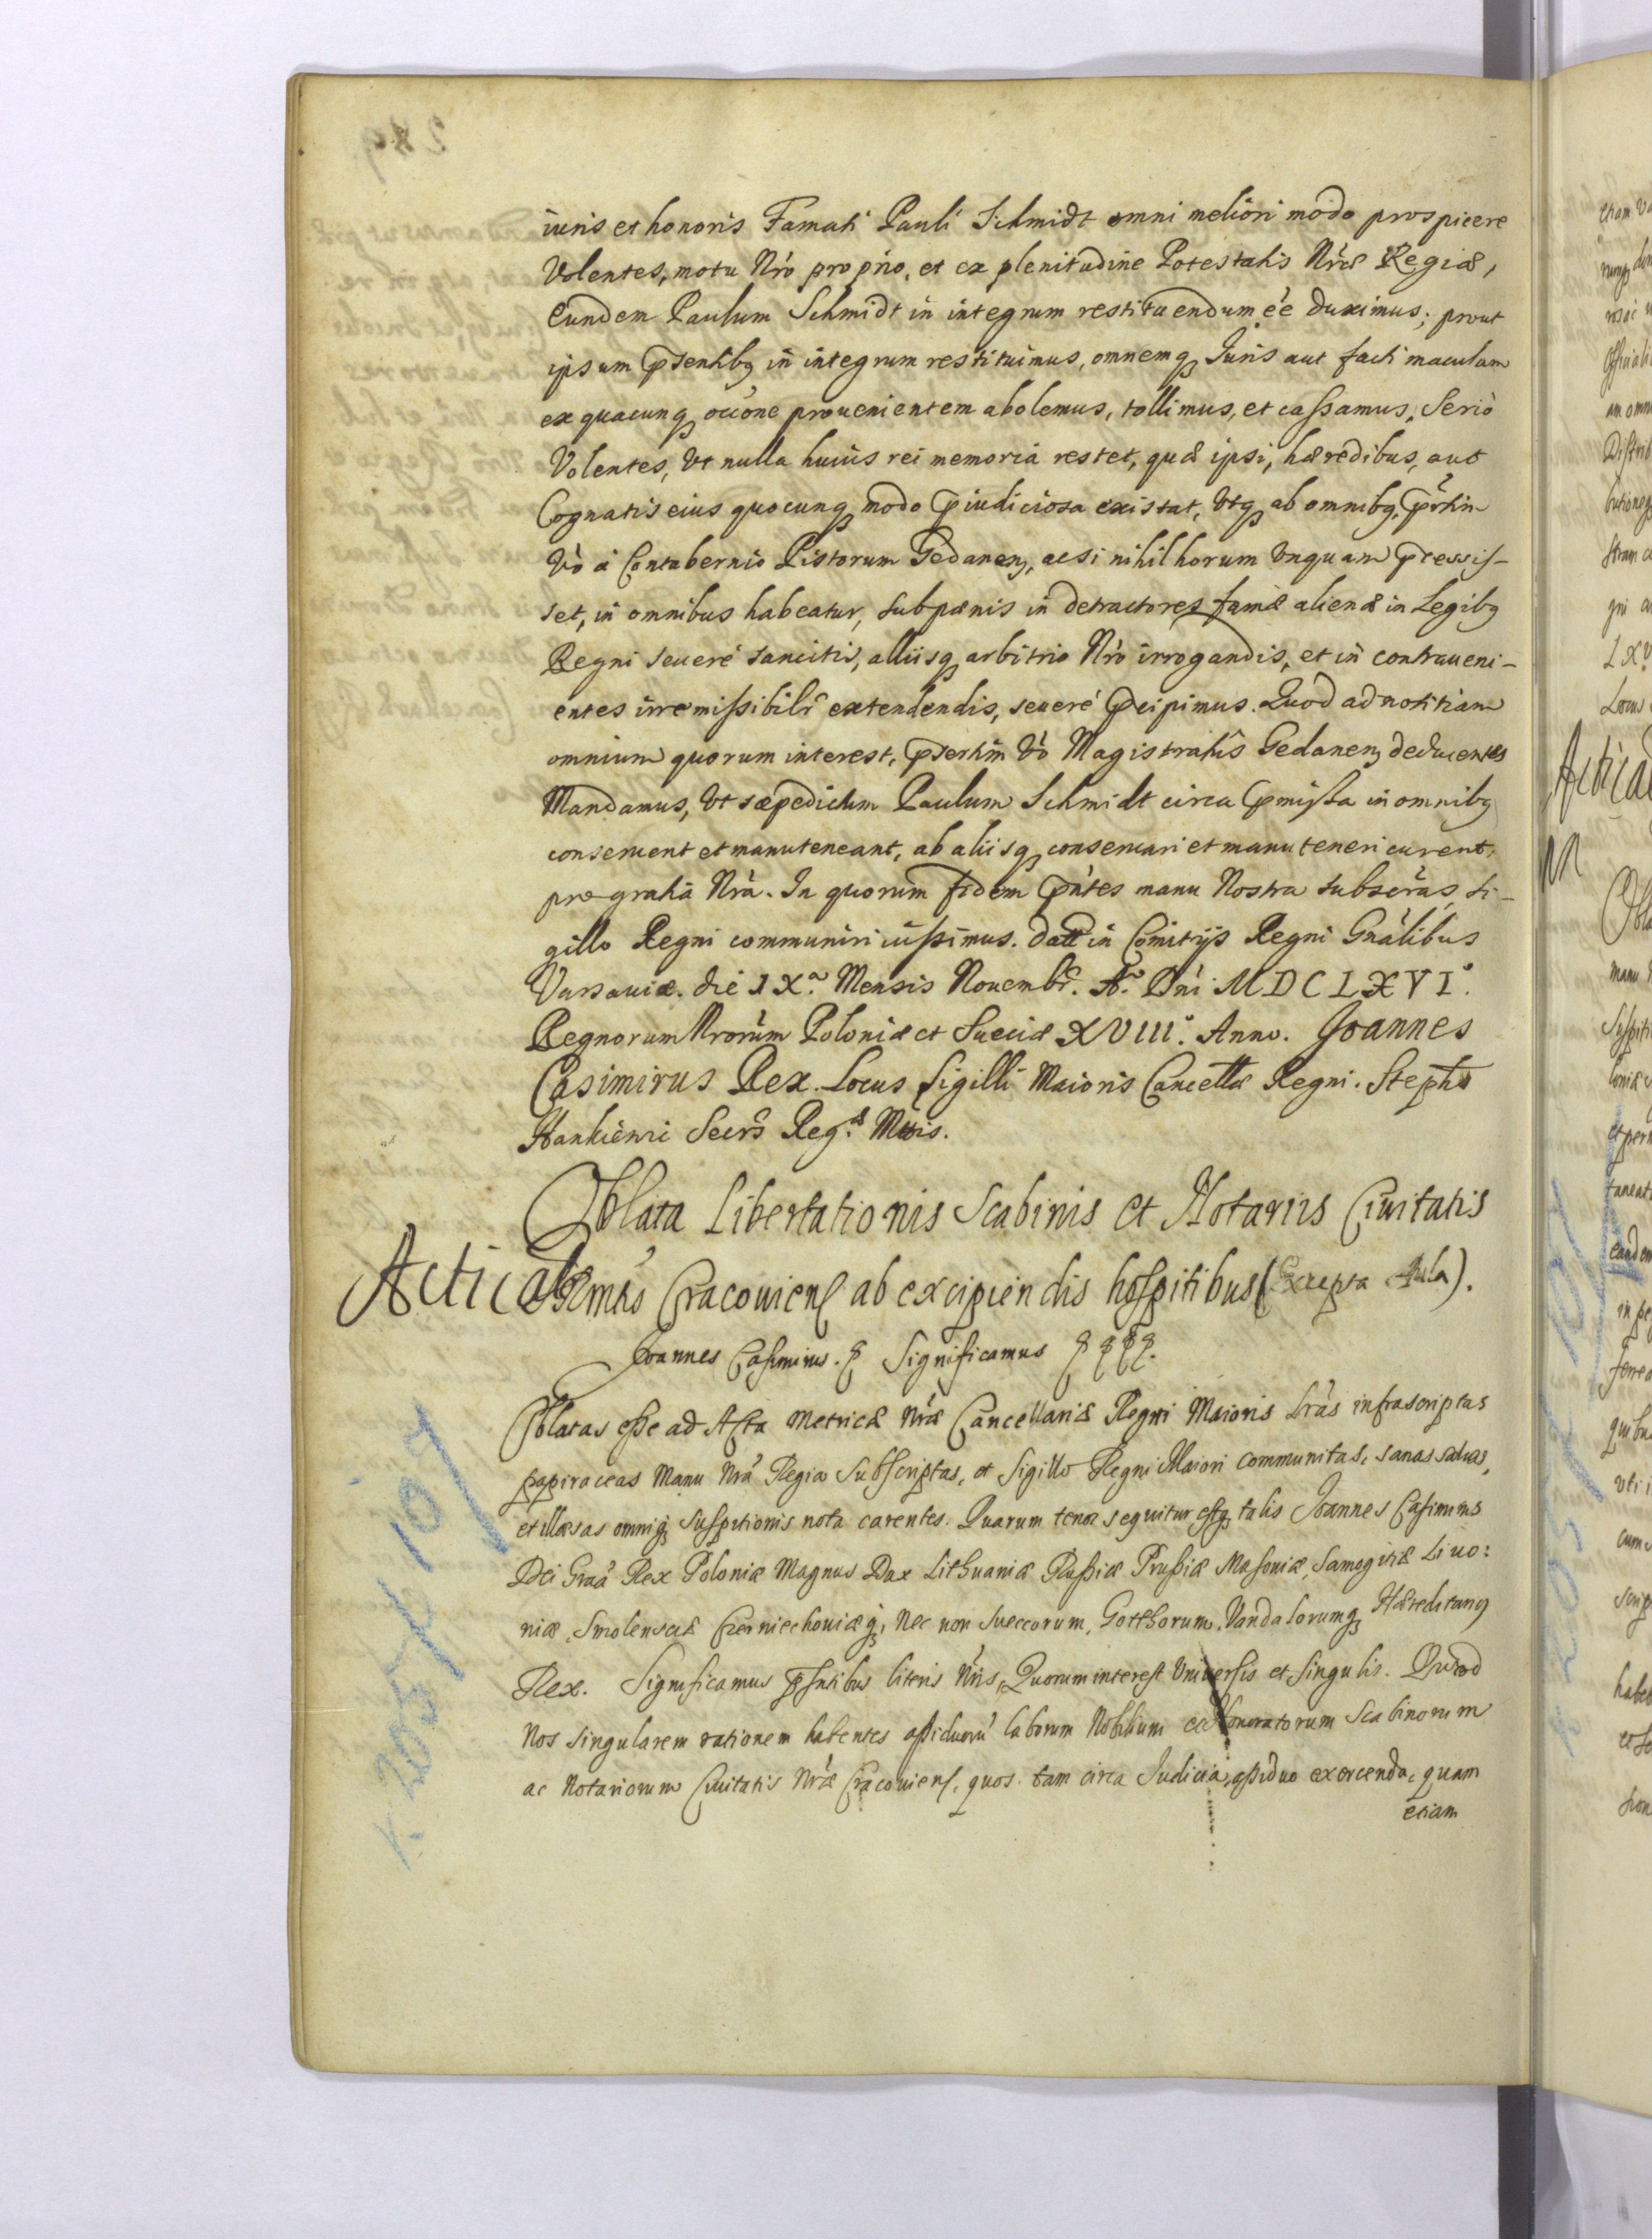 iuris et honoris Famati Pauli Schmidt omni meliori modo prospicere
Volentes, motu Nr̃o proprio, et ex plenitudine Potestatis Nr̃æ Regiæ,
Eundem Paulum Schmidt in integrum restituendum ẽe duximus; prout
ipsum p̃sentibꝫ in integrum restituimus, omnemqꝫ Iuris aut facti maculam
ex quacunqꝫ occ̃one prouenientem abolemus, tollimus, et cassamus. Seriò
Volentes, Vt nulla huius rei memoria restet, quæ ipsi, hæredibus, aut
Cognatis eius quocunqꝫ modo p̃iudiciosa existat, Vtqꝫ ab omnibꝫ, p̃rtim
Vò à Contubernio Pistorum Gedanenꝫ, acsi nihil horum Vnquam p̃cessis-
set, in omnibus habeatur, sub pænis in detractores famæ alienæ in Legibꝫ
Regni seuerè sancitis, alliisqꝫ arbitrio Nr̃o irrogandis, et in contraueni-
entes irremissibilr̃ extendendis, seuerè p̃cipimus. Quod ad notitiam
omnium quorum interest, p̃sertim Vò Magistratûs Gedanenꝫ deducentes
Mandamus, Vt sæpedictum Paulum Schmidt circa p̃missa in omnibꝫ
conseruent et manuteneant, ab aliisqꝫ conseruari et manuteneri curent,
pro gratia Nr̃a. In quorum fidem p̃ntes manu Nostra subscr̃as, si-
gillo Regni communiri iussimus. Datt in Comitijs Regni Gñalibus
Varsauiæ. die IXa. Mensis Nouembr̃. Ao. Dñi MDCLXVIo.
Regnorum Nrorũm Poloniæ et Sueciæ XVIIIo. Anno. Joannes
Casimirus Rex. Locus Sigilli Maioris Cancellæ Regni. Stephs
Hankiewi Secrs Regæ Mttis.
Oblata Libertationis Scabinis et Notariis Ciuitatis
Acticat
Cracouienſ ab excipiendis hospitibus (Excepta Aula).
Joannes Casimirus. Significamus
Oblatas esse ad Acta Metricæ Nr̃æ Cancellariæ Regni Maioris Lr̃as infrascriptas
papiraceas Manu Nr̃a Regia Subscriptas, et Sigillo Regni Maiori communitas, sanas saluas,
et illæsas omniqꝫ suspitionis nota carentes. Quarum tenor sequitur estqꝫ talis Joannes Casimirus
Dei Graã Rex Poloniæ Magnus Dux Lithuaniæ Russiæ Prussiæ Masouiæ, Samogitiæ Liuo:
niæ, Smolensciæ Czerniechouiæqꝫ, Nec non Sueccorum, Gotthorum, Vandalorumqꝫ Hæreditariꝰ
Rex. Significamus p̃sentibus literis Nr̃is, Quorum interest Vniuersis et Singulis. Quod
Nos singularem rationem habentes assiduorũ laborum Nobilium ac Honoratorum Scabinorum
ac Notariorum Ciuitatis Nr̃æ Cracouienſ, quos tam circa Iudicia, assiduo exercenda, quam
etiam